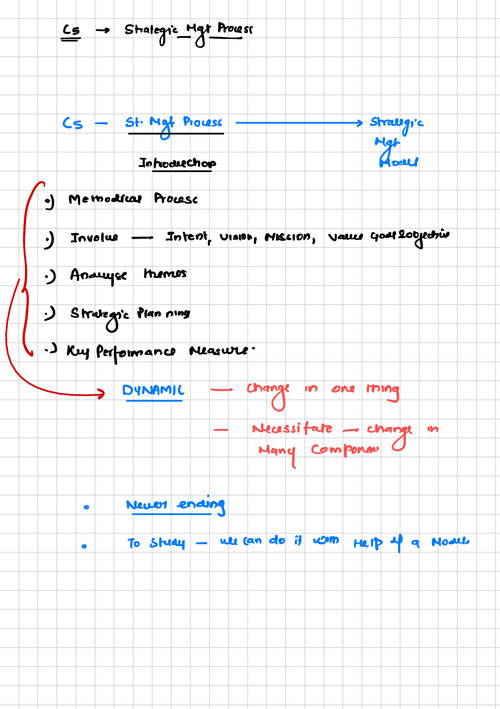 C5 → Strategic Mgt Process
C5 — St. Mgt Process → Strategic
Mgt
Model
Introduction
•) Methodical Process
•) Involve — Intent, Vision, Mission, Value Goal & objective
•) Analyse themes
•) Strategic Planning
•) Key Performance Measure.
DYNAMIC — change in one thing
— Necessitate — change in
Many Component
• Never ending
• To Study — we can do it with Help of a Model